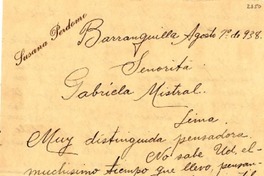 Susana Perdomo
Barranquilla Agosto 7º de 938.
Señorita
Gabriela Mistral.
Lima.
Muy distinguida pensadora
No sabe Ud. el
muchísimo tiempo que llevo, pensan-